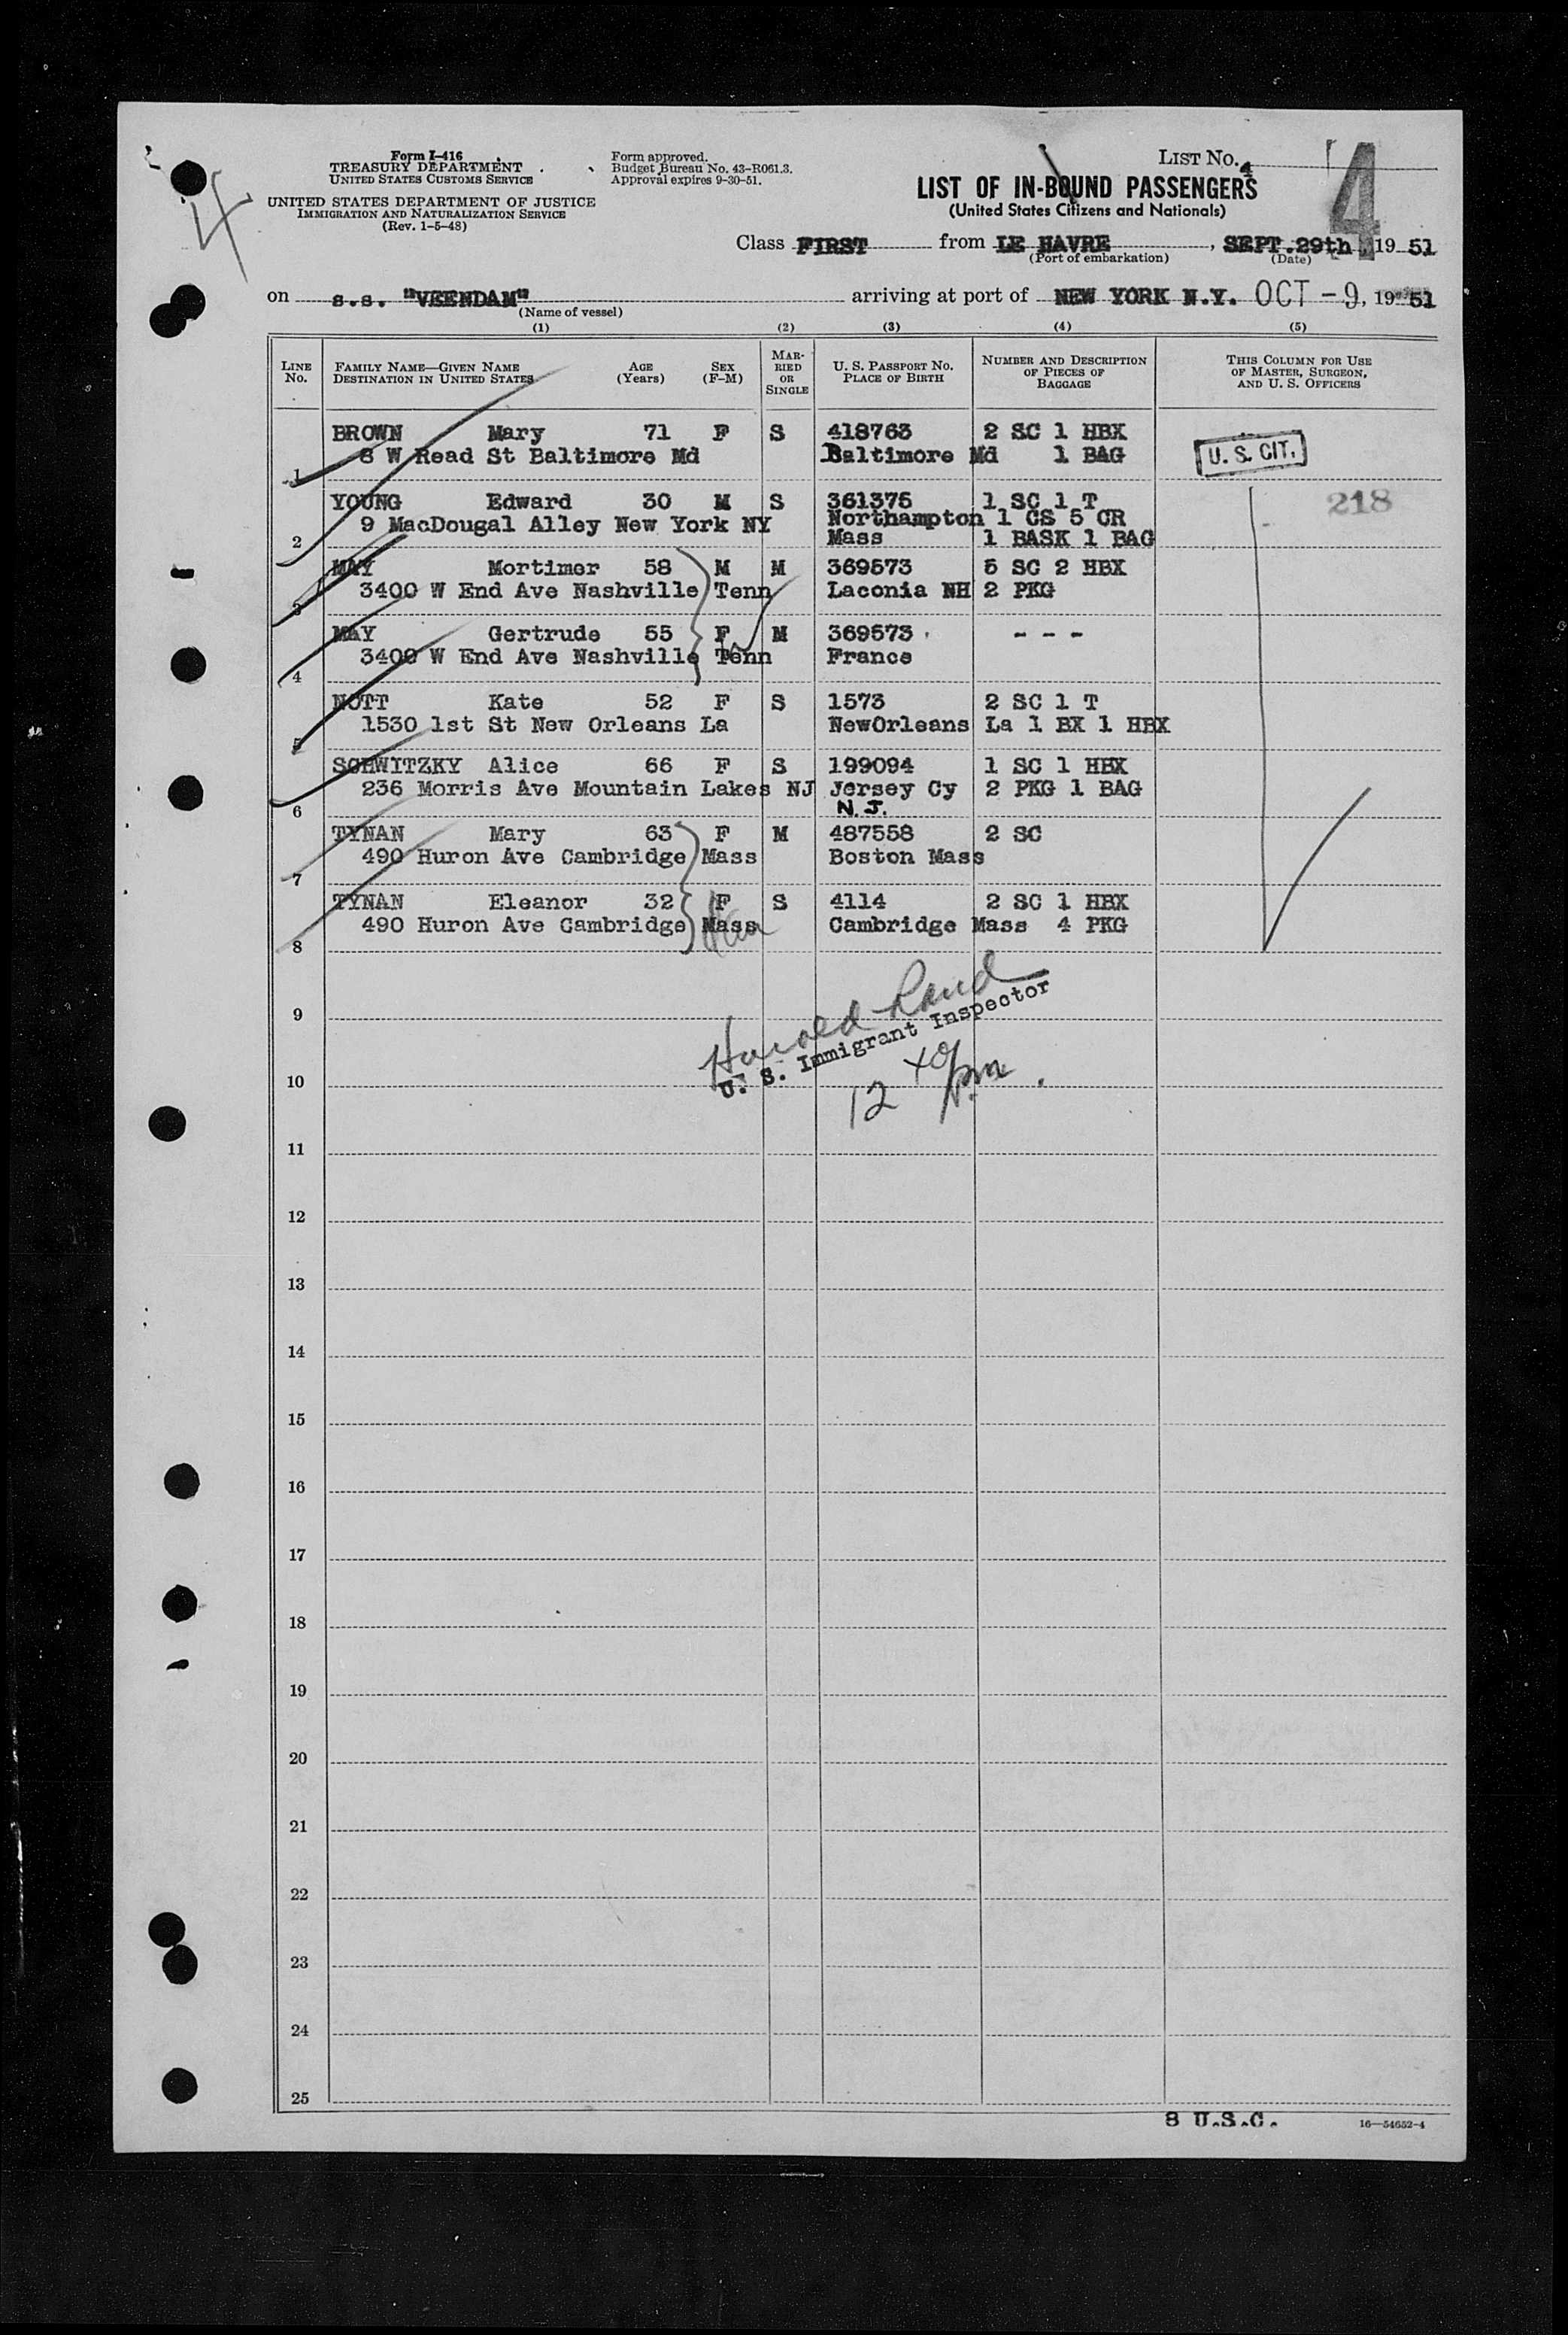 Form I-416
TREASURY DEPARTMENT
UNITED STATES CUSTOMS SERVICE
UNITED STATES DEPARTMENT OF JUSTICE
IMMIGRATION AND NATURALIZATION SERVICE
(Rev. 1-5-48)
Form approved.
Budget Bureau No. 43-R061.3.
Approval expires 9-30-51.
4
LIST NO. 4
4
LIST OF IN-BOUND PASSENGERS
(United States Citizens and Nationals)
Class FIRST from LE HAVRE, SEPT.29th, 19 51
(Port of embarkation) (Date)
on s.s. "VEENDAM" arriving at port of NEW YORK N.Y. OCT -9, 19 51
(Name of vessel)
(1) (2) (3) (4) (5)
LINE No. FAMILY NAME—GIVEN NAME DESTINATION IN UNITED STATES AGE (Years) SEX (F-M) MARRIED OR SINGLE U. S. PASSPORT NO. PLACE OF BIRTH NUMBER AND DESCRIPTION OF PIECES OF BAGGAGE THIS COLUMN FOR USE OF MASTER, SURGEON, AND U. S. OFFICERS
BROWN Mary 71 F S 418763 2 SC 1 HBX
1 8 W Read St Baltimore Md Baltimore Md 1 BAG U. S. CIT.
YOUNG Edward 30 M S 361375 1 SC 1 T 218
9 MacDougal Alley New York NY Northampton 1 CS 5 CR
2 Mass 1 BASK 1 BAG
MAY Mortimer 58 M M 369573 5 SC 2 HBX
3 3400 W End Ave Nashville Tenn Laconia NH 2 PKG
MAY Gertrude 55 F M 369573 - - -
4 3400 W End Ave Nashville Tenn France
NOTT Kate 52 F S 1573 2 SC 1 T
5 1530 1st St New Orleans La NewOrleans La 1 BX 1 HBX
SCHWITZKY Alice 66 F S 199094 1 SC 1 HBX
236 Morris Ave Mountain Lakes NJ Jersey Cy 2 PKG 1 BAG
6 N. J.
TYNAN Mary 63 F M 487558 2 SC
7 490 Huron Ave Cambridge Mass Boston Mass
TYNAN Eleanor 32 F S 4114 2 SC 1 HBX
8 490 Huron Ave Cambridge Mass Cambridge Mass 4 PKG
9
Harold Rand
U. S. Immigrant Inspector
10
12 40 pm.
11
12
13
14
15
16
17
18
19
20
21
22
23
24
25
8 U.S.C.
16—54652-4